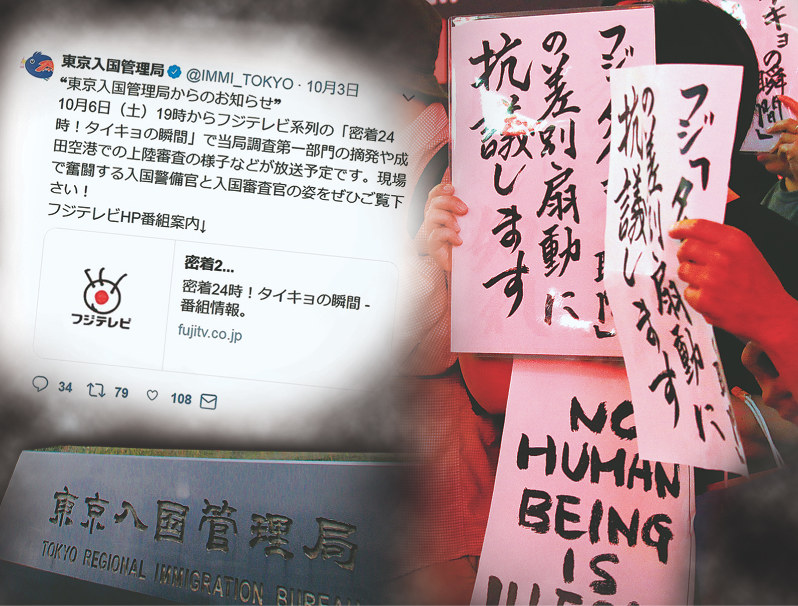 東京入国管理局 @IMMI_TOKYO · 10月3日
❝東京入国管理局からのお知らせ❞
10月6日（土）19時からフジテレビ系列の「密着24
時！タイキョの瞬間」で当局調査第一部門の摘発や成
田空港での上陸審査の様子などが放送予定です。現場
で奮闘する入国警備官と入国審査官の姿をぜひご覧下
さい！
フジテレビHP番組案内↓
フジテレビ
密着2...
密着24時！タイキョの瞬間 -
番組情報。
fujitv.co.jp
34 79 108
東京入国管理局
TOKYO REGIONAL IMMIGRATION BUREAU
フジ
の差別扇動に
抗議します
フジ
の差別扇動に
抗議します
キョの瞬間」
NO
HUMAN
BEING
IS